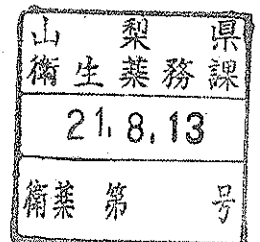 山梨県
衛生薬務課
21.8.13
衛薬第 号